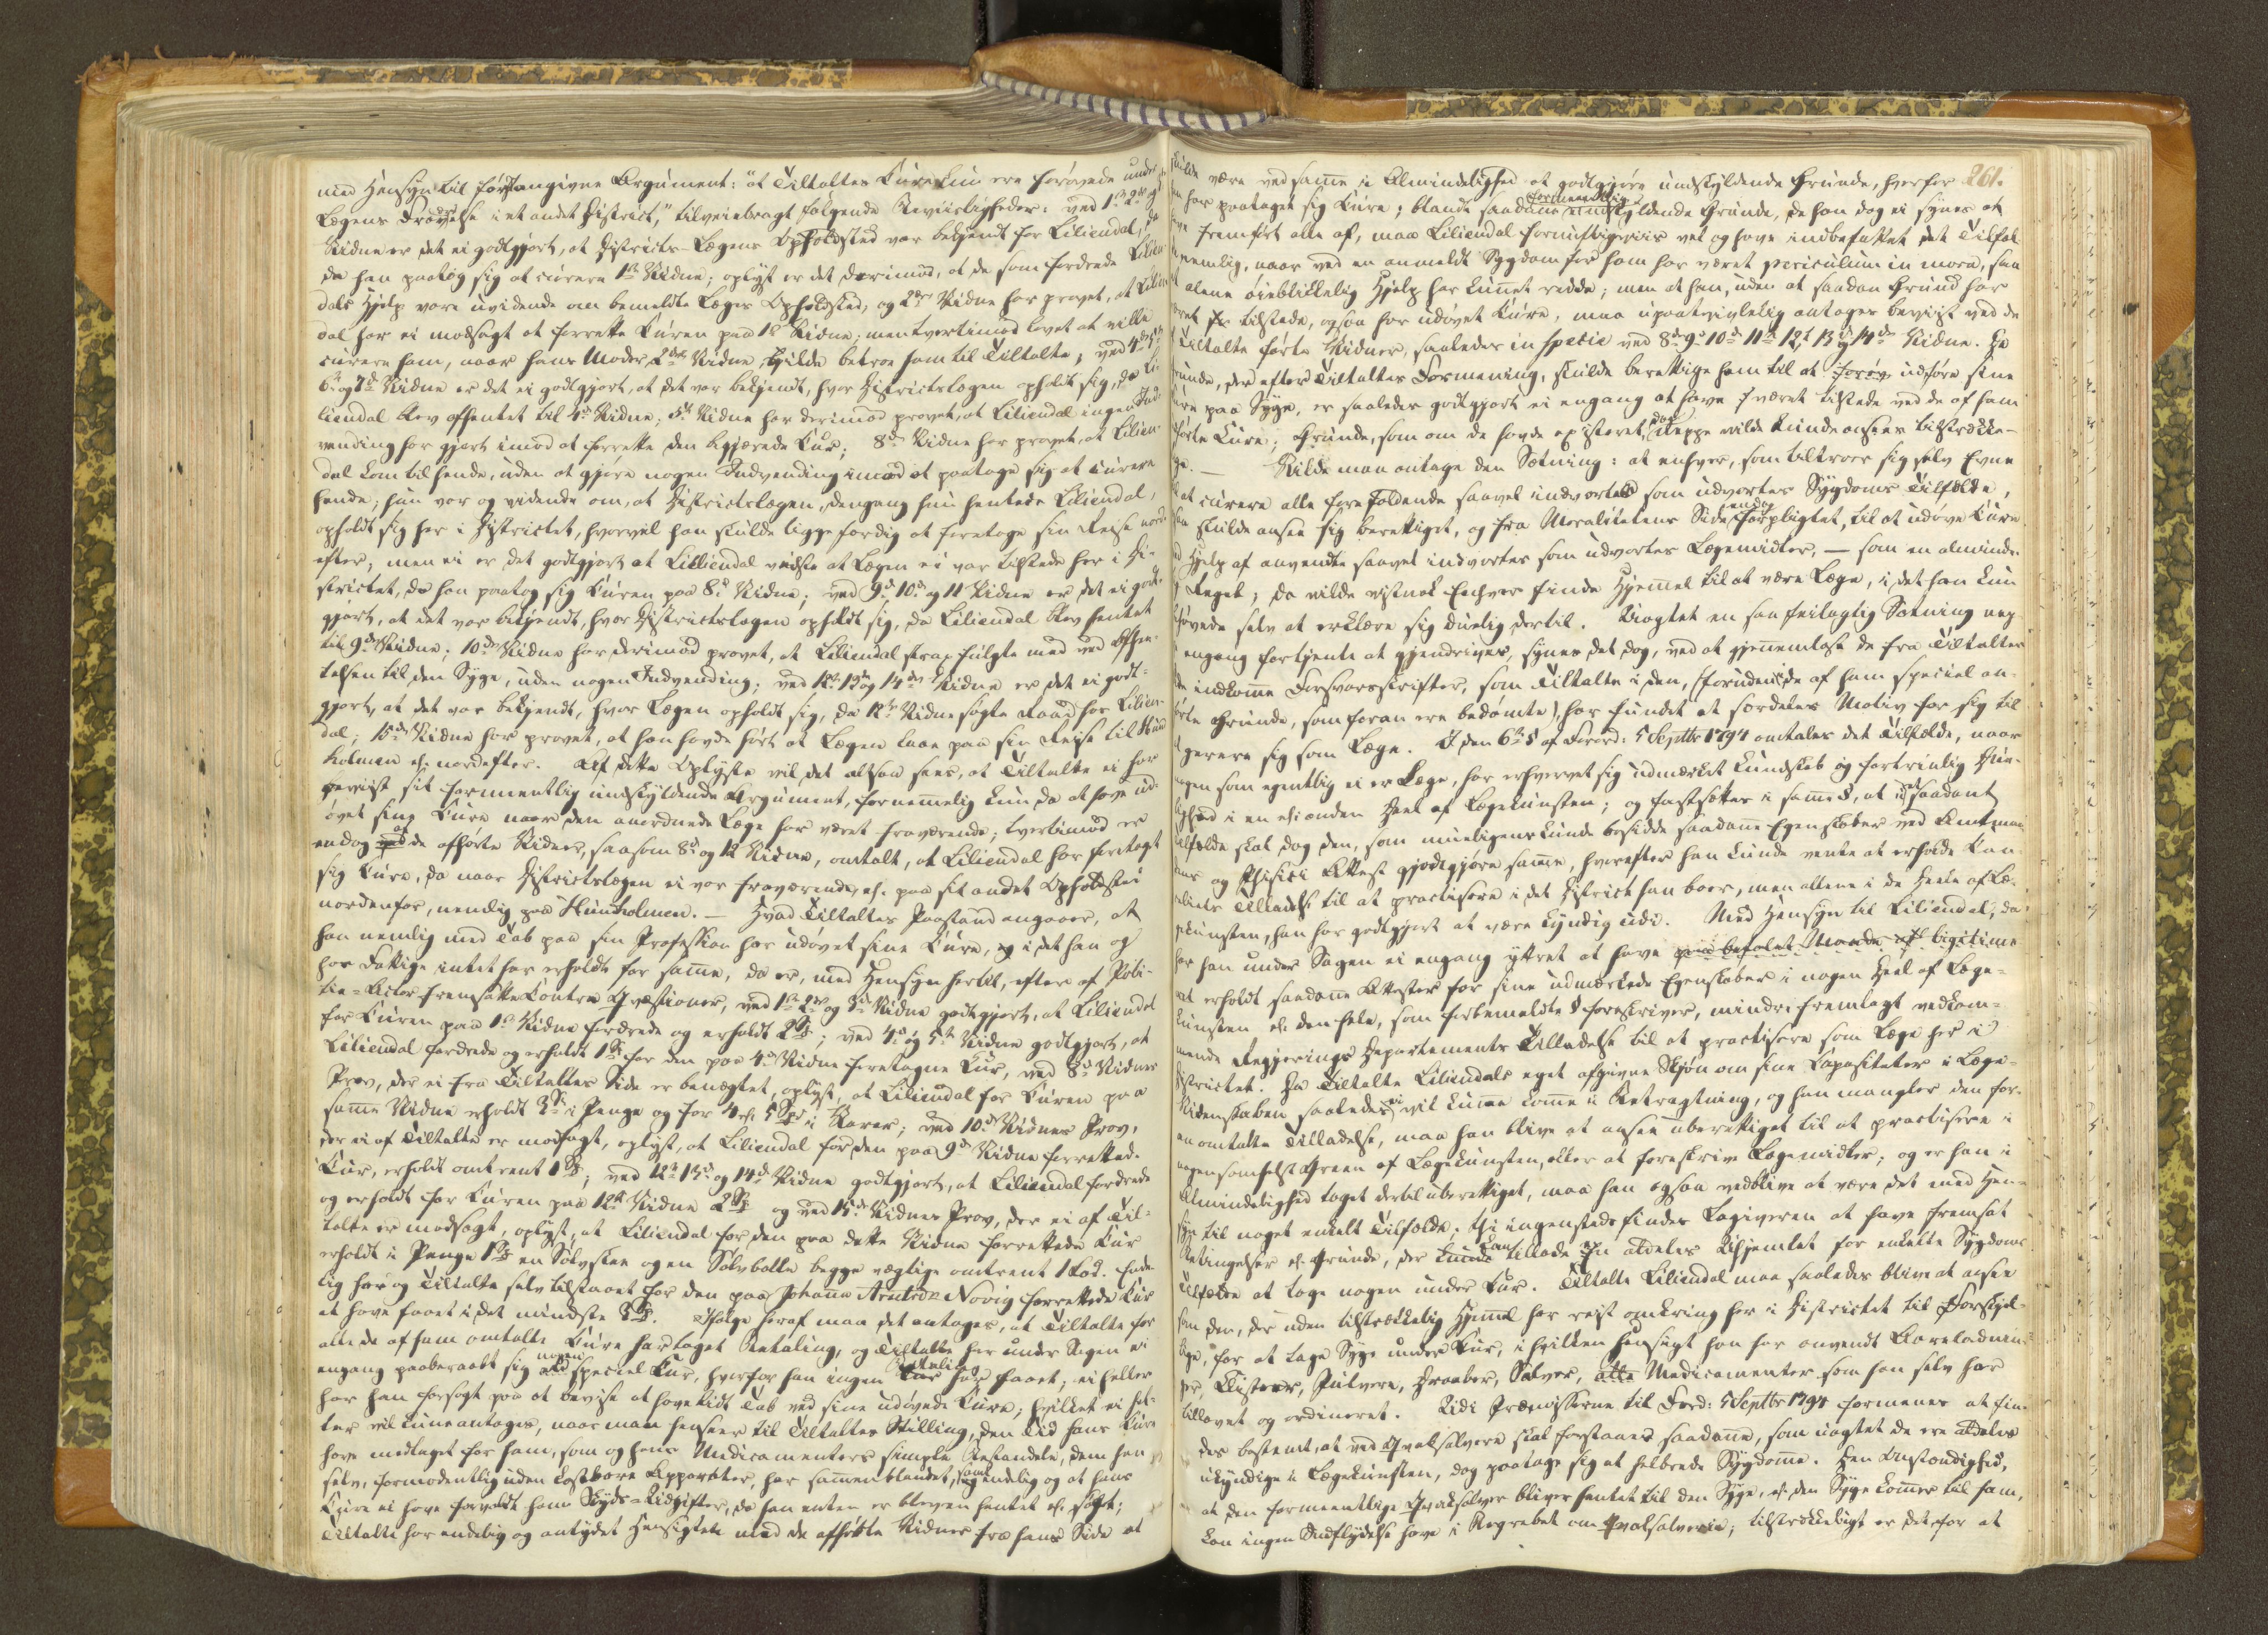 med Hensyn til førstangivne Argument: "at Tiltaltes Kure kun ere forøvede under
Lægens Fraværelse i et andet District," tilveiebragt følgende Beviisligheder: ved 1ste 2det og
Vidne er det ei godtgjort, at Districts-Lægens Opholdsted var bekjendt for Liliendal,
da han paatog sig at curere 1ste Vidne; oplyst er det derimod, at de som fordrede Lilien-
dals Hjelp vare uvidende om bemeldte Læges Opholdsted, og 2det Vidne har provet, at Lilien-
dal har ei modsagt at forrette Kuren paa 1ste Vidne; men tvertimod lovet at ville
curere ham, naar hans Moder, 2det Vidne, vilde betroe ham til Tiltalte; ved 4de 5te
6te og 7de Vidne er det ei godtgjort, at det var bekjendt, hvor Districtslægen opholdt sig, da Li-
liendal blev afhentet til 4de Vidne; 5te Vidne har derimod provet, at Liliendal ingen Ind-
vending har gjort imod at forrette den begjærede Kur; 8de Vidne har provet, at Lilien-
dal kom til hende, uden at gjøre nogen Indvending imod at paatage sig at curere
hende; hun var og vidende om, at Districtslægen, dengang hun hentede Liliendal,
opholdt sig her i Districtet, hvorvel han skulde ligge færdig at foretage sin Reise nord-
efter, men ei er det godtgjort at Liliendal vidste at Lægen ei var tilstede her i Di-
strictet, da han paatog sig Kuren paa 8de Vidne; ved 9de 10de og 11 Vidne er det ei godt-
gjort, at det var bekjendt, hvor Districtslægen opholdt sig, da Liliendal blev hentet
til 9de Vidne; 10de Vidne har derimod provet, at Liliendal strax fulgte med ved Afhen-
telsen til den Syge, uden nogen Indvending; ved 12te 13de og 14de Vidne er det ei godt-
gjort, at det var bekjendt, hvor Lægen opholdt sig, da 12te Vidne søgte Raad hos Lilien-
dal; 15de Vidne har provet, at han havde hørt at Lægen laae paa sin Reise til Hund-
holmen el. nordefter. Af dette Oplyste vil det altsaa sees, at Tiltalte ei har
beviist sit formeentlig undskyldende Argument, fornemmelig kun da at have ud-
øvet sine Kure naar den anordnede Læge har været fraværende; tvertimod er
endog af de afhørte Vidner, saasom 8de og 12 Vidne, omtalt, at Liliendal har foretagt
sig Kure, da naar Districtslægen ei var fraværende el. paa sit andet Opholdsted
nordenfor, nemlig paa Hundholmen. — Hvad Tiltaltes Paastand angaaer, at
han nemlig med Tab paa sin Profession har udøvet sine Kure, og i det han og
hos Fattige intet har erholdt for samme, da er, med Hensyn hertil, efter af Poli-
tie-Actor fremsatte Contra Qvæstioner, ved 1ste 2det og 3die Vidne godtgjort, at Liliendal
for Kuren paa 1ste Vidne fordrede og erholdt 2 Spd; ved 4de og 5te Vidne godtgjort, at
Liliendal fordrede og erholdt 1 Spd for den paa 4de Vidne foretagne Kur, ved 8de Vidnes
Prov, der ei fra Tiltaltes Side er benægtet, oplyst, at Liliendal for Kuren paa
samme Vidne erholdt 3 Spd i Penge og for 4 el. 5 Spd i Varer; ved 10de Vidnes Prov,
der ei af Tiltalte er modsagt, oplyst, at Liliendal for den paa 9de Vidne forrettede
Kur, erholdt omtrent 1 Spd; ved 12te 13de og 14de Vidne godtgjort, at Liliendal fordrede
og erholdt for Kuren paa 12te Vidne 2 Spd og ved 15de Vidnes Prov, der ei af Til-
talte er modsagt, oplyst, at Liliendal for den paa dette Vidne forrettede Kur
erholdt i Penge 1 Spd en Sølvskee og en Sølvbolle begge vegtige omtrent 1 Lod. Ende-
lig har og Tiltalte selv tilstaaet for den paa Johanna Arntsdr Novig forrettede Kur
at have faaet i det mindste 3 Spd. Ifølge heraf maa det antages, at Tiltalte for
alle de af ham omtalte Kure har taget Betaling, og Tiltalte har under Sagen ei
engang paaberaabt sig nogen special Kur, hvorfor han ingen Betaling har faaet; ei heller
har han forsøgt paa at bevise at have lidt Tab ved sine udøvede Kure; hvilket ei hel-
ler vil kunne antages, naar man henseer til Tiltaltes Stilling, den Tid hans Kure
have medtaget for ham, som og hans Medicamenters simple Bestandele, dem han
selv, formodentlig uden kostbare Apparater, har sammenblandet, samt endelig og at hans
Kure ei have forvoldt ham Skyds-Udgifter, da han enten er bleven hentet el. søgt;
Tiltalte har endelig og antydet Hensigten med de afhørte Vidner fra hans Side at
261.
skulde være ved samme i Almindelighed at godtgjøre undskyldende Grunde, hvorfor
han har paataget sig Kure; blandt saadane formeentlig undskyldende Grunde, de han dog ei synes at
have fremført alle af, maa Liliendal fornuftigviis vel og have indbefattet det Tilfæl-
nemlig, naar ved en anmeldt Sygdom for ham har været periculum in mora, saa
at alene øieblikkelig Hjelp har kunnet redde; men at han, uden at saadan Grund har
været tilstede, ogsaa har udøvet Kure, maa upaatvivlelig antages beviist ved de
af Tiltalte førte Vidner, saaledes in specie ved 8de 9de 10de 11te 12te 13de og 14de Vidne. De
Grunde, der efter Tiltaltes Formening, skulde berettige ham til at udføre sine
Kure paa Syge, er saaledes godtgjort ei engang at have været tilstede ved de af ham
udførte Kure; Grunde, som om de havde existeret, dog neppe vilde kunde ansees tilstrække-
lige. — Vilde man antage den Sætning: at enhver, som tiltroer sig selv Evne
til at curere alle forefaldende saavel indvortes som udvortes Sygdoms Tilfælde,
han skulde ansee sig berettiget, og fra Moralitetens Side endog forpligtet, til at udøve Kure
ved Hjelp af anvendte saavel indvortes som udvortes Lægemidler, — som en alminde-
lig Regel; da vilde vistnok Enhver finde Hjemmel til at være Læge, i det han kun
behøvede selv at erklære sig duelig dertil. Uagtet en saa feilagtig Sætning nep-
pe engang fortjente at gjendrives, synes det dog, ved at gjennemlæse de fra Tiltaltes
Side indkomne Forsvarsskrifter, som Tiltalte i den, (foruden i de af ham speciel an-
førte Grunde, som foran ere bedømte), har fundet et særdeles Motiv for sig til
at gerere sig som Læge. I den 6te § af Forord: 5 Septbr 1794 omtales det Tilfælde, naar
nogen som egentlig ei er Læge, har erhvervet sig udmærket Kundskab og fortrinlig Due-
lighed i en el. anden Deel af Lægekunsten; og fastsættes i samme §, at i et saadant
Tilfælde skal dog den, som mueligens kunde besidde saadanne Egenskaber ved Amtman-
dens og Phisici Attest godtgjøre samme, hvorefter han kunde vente at erholde Can-
celliets Tilladelse til at practisere i det District han boer, men allene i de Deele af Læ-
gekunsten, han har godtgjort at være kyndig udi. Med Hensyn til Liliendal, da
har han under Sagen ei engang yttret at have legitime
at erholdt saadanne Attester for sine udmærkede Egenskaber i nogen Deel af Læge-
kunsten el. den hele, som forbemeldte § foreskriver, mindre fremlagt vedkom-
mende Regjerings Departements Tilladelse til at practisere som Læge her i
Districtet. Da Tiltalte Liliendals eget afgivne Skjøn om sine Capasiteter i Læge-
Videnskaben saaledes ei vil kunne komme i Betragtning, og han mangler den for-
an omtalte Tilladelse, maa han blive at ansee uberettiget til at practisere i
nogen somhelst Green af Lægekunsten, eller at foreskrive Lægemidler; og er han i
Almindelighed taget dertil uberettiget, maa han ogsaa vedblive at være det med Hen-
syn til noget enkelt Tilfælde; thi ingensteds findes Lovgiveren at have fremsat
Betingelser el. Grunde, der kan tillade En aldeles Uhjemlet for enkelte Sygdoms
Tilfælde at tage nogen under Kur. Tiltalte Liliendal maa saaledes blive at ansee
som den, der uden tilstrækkelig Hjemmel har reist omkring her i Districtet til Forskjel-
lige, for at tage Syge under Kur, i hvilken Hensigt han har anvendt Aareladnin-
ger, Klisterer, Pulvere, Draaber, Salver, alle Medicamenter som han selv har
tillavet og ordineret. Udi Præmisserne til Ford: 5 Septbr 1794 formenes at fin-
des bestemt, at ved Qvaksalvere skal forstaaes saadanne, som uagtet de ere aldeles
ukyndige i Lægekunsten, dog paatage sig at helbrede Sygdomme. Den Omstændighed,
at den formeentlige Qvaksalver bliver hentet til den Syge, el. den Syge kommer til ham,
kan ingen Indflydelse have i Begrebet om Qvaksalverie; tilstrækkeligt er det for at